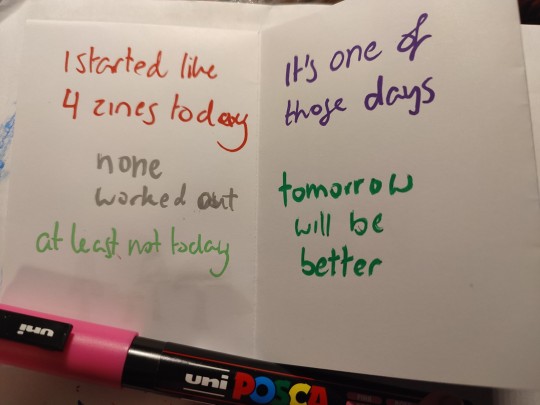 I started like
4 zines today
none
worked out
at least not today
It's one of
those days
tomorrow
will be
better
uni
uni POSCA